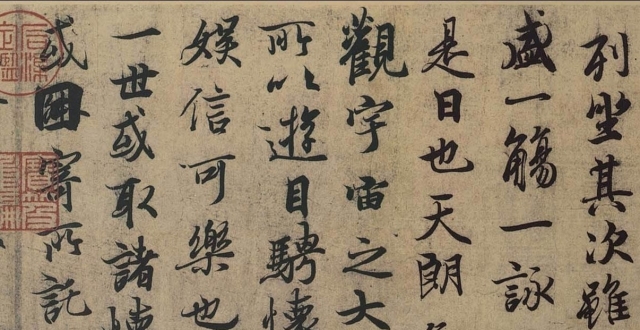 列坐其次雖
盛一觴一詠
是日也天朗
觀宇宙之大
所以遊目騁懷
娛信可樂也
一世或取諸懷
或因寄所託